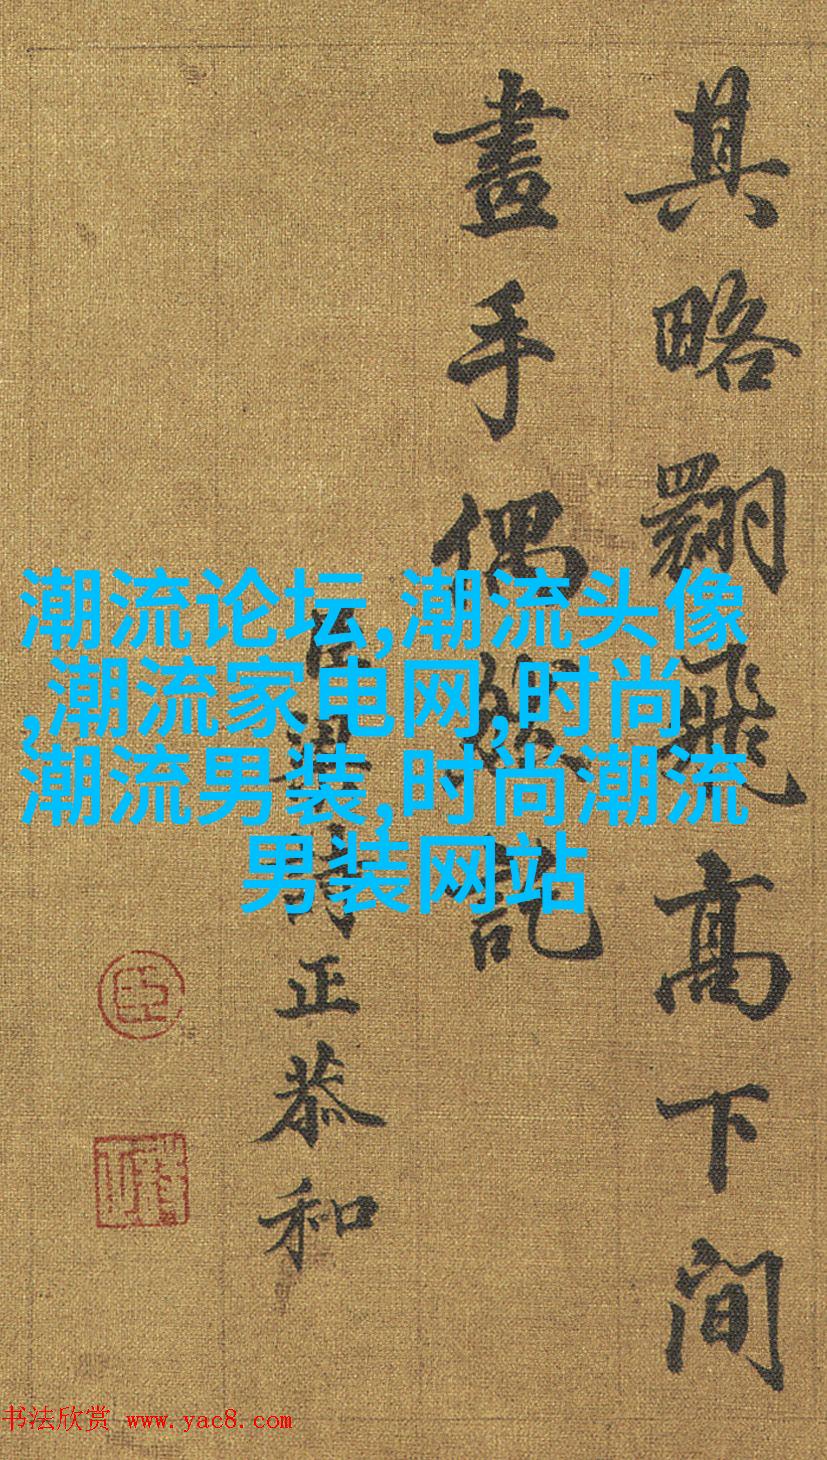 其略翾飛高下間
畫手偶然記
臣梁詩正恭和
臣
潮流论坛,潮流头像
,潮流家电网,时尚
潮流男装,时尚潮流
男装网站
书法欣赏 www.yac8.com